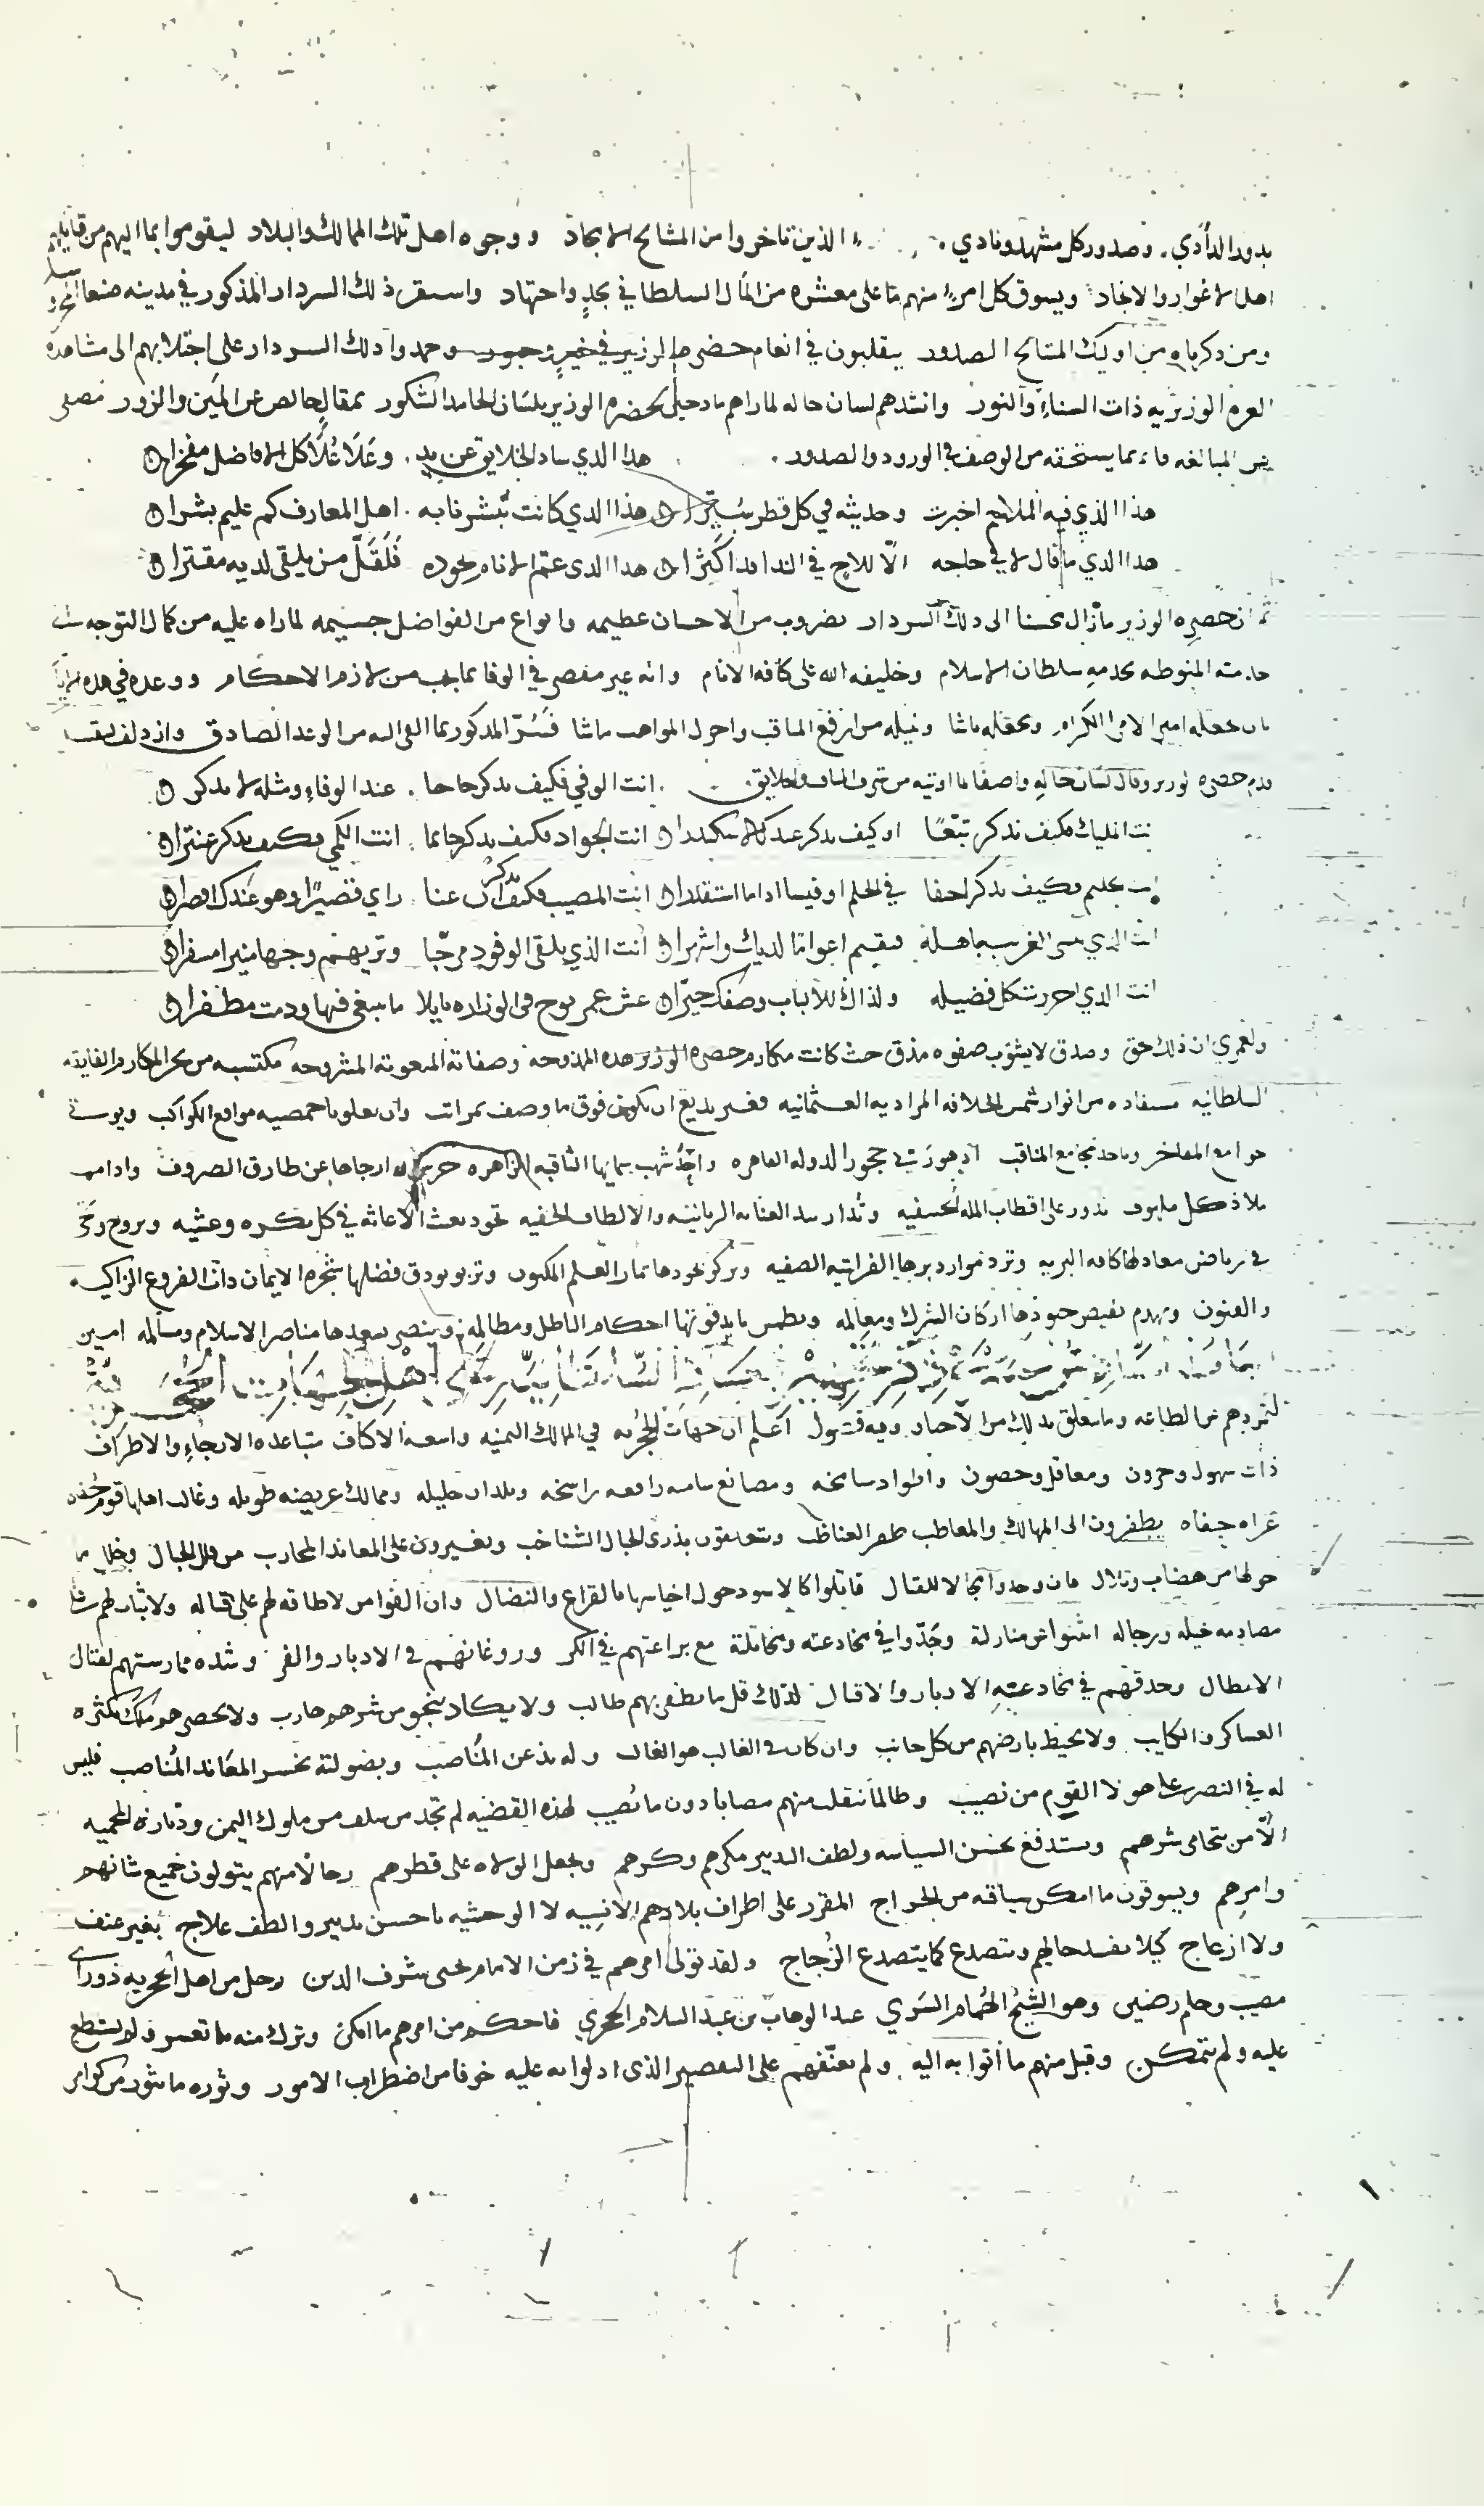 بدور الدآدي. وصدور كل مشهد ونادي. الذين تاخروا من المشائخ الامجاد ووجوه اهل تلك الممالك والبلاد ليقوموا بما اليهم من
اهل الاغوار والانجاد ويسوق كل امرء منهم ما على معشره من المال السلطاني بجدٍ واجتهاد واستقر ذلك السردار المذكور في مدينه صنعا
ومن ذكرناه من اوليك المشائخ الصدور يتقلبون في انعام حضره الوزير في خيرٍ وحبور وحمدوا ذلك السردار على اجتلابهم الى مشاهدة
الغره الوزيريه ذات السناء والنور وانشدهم لسان حاله لما راهم مادحين لحضره الوزير بلسان الحامد الشكور بمقالٍ خالص عن المين والزور
عن المبالغه فاه بما يستحقه من الوصف في الورود والصدور. هذا الذي ساد الخلايق عن يدٍ. وعَلَا عُلًا كل الافاضل مفخرا
هذا الذي فيه الملاحم اخبرت وحديثه في كل قطر هذا الذي كانت تُبشرنا به. اهل المعارف كم عليم بشرا
هذا الذي ما قال لا في حاجه الّا للاحٍ في الندا هذا الذي عمّ الانام بجوده فَلَقَلّ من يلقى لديه مقترا
ثم ان حضره الوزير ما زال محسنا الى ذلك السردار بضروب من الاحسان عظيمه وانواع من الفواضل جسيمه لما راه عليه من كمال التوجه في
خدمته المنوطه بخدمه سلطان الاسلام وخليفه الله على كافه الانام وانه غير مقصر في الوفا بما يجب من لازم الاحكام ووعده في هذه
بان يجعله امير الامرا الكرام ويجعله باشا وينيله من ارفع المناقب واجزل المواهب ماشا فَسُرّ المذكور بما القى اليه من الوعد الصادق وازدلف
قدم حضره الوزير وقال لسان حاله واصفا ما اوتيه من شرف والخلايق. انت الوفي فكيف نذكر حاجبا. عند الوفاء ومثله لا يذكر
انت المليك فكيف نذكر تبّعًا او كيف نذكر عندك الاسكندرا انت الجواد فكيف نذكر حاتما. انت الكمي فكيف نذكر عنترا
انت حليم فكيف نذكر احنفا في الحلم او قيسا اذا ما استقدرا انت المصيب فكيف نذكر عنا راي قصيرًا وهو عندك اقصرا
انت الذي ينسى الغريب باهله فيقيم اعواما لديك واشهرا انت الذي يلقى الوفود مرحّبا وتريهم وجها منيرا مسفرا
انت الذي احرزت كل فضيله ولذاك للالباب وصفك حيّرا عش عمر نوح في الوزاره نايلا ما تبتغي فيها ودمت مظفرا
ولعمري ان ذلك حق وصدق لا يشوب صفوه مذق حيث كانت مكارم حضره الوزير هذه الممدوحه وصفاته المنعوته المشروحه مكتسبه من بحر المكارم الفايقه
السلطانيه مستفاده من انوار شمس الخلافه المراديه العثمانيه فغير بديع ان يكون فوق ما وصف بمراتب وان يعلو باخمصيه مواقع الكواكب
جوامع المفاخر ومجامع المناقب اذ هو رُبّي في حجور الدوله القاهره واحدُ شهب سمايها الثاقبه الزاهره حرس الله ارجاها عن طارق الصروف وادامها
ملاذ كل ملهوف تدور على اقطاب المله الحنيفيه وتُدار بيد العنايه الربانيه والالطاف الخفيه تجود بغيث الاغاثه في كل بكره وعشيه
في رياض معاد لها كافه البريه وترد موارد برها الفراتيه الصفيه وتزكو بجودها ثمار العلم المكنون وتربو بودق فضلها شجره الايمان ذات الفروع الزاكيه
والغصون ويهدم بفيض جنودها اركان الشرك ومعالمه ويطمس احكام الباطل ومظالمه وينصر بسعدها مناصر الاسلام ومسالمه امين
لتمردهم عن الطاعه وما يتعلق بذلك من الاخبار وفيه فصول اعلم ان جهات الحجريه في الممالك اليمنيه واسعه الاكناف متباعده الارجاء والاطراف
ذات سهول وحزون ومعاقل وحصون واطواد سامخه ومصانع ساميه رافعه راسخه وبلدان جليله وممالك عريضه طويله وغالب اهلها قوم
عراه جفاه يطفرون الى المهالك والمعاطب طفر العناظب ويتعلقون بذرى الجبال الشناخب ويغيرون على المعاند المحارب من قلل الجبال وخلال ما
حولها من هضاب وتلال فان وجدوا مجالا للقتال قاتلوا كالاسود حول اخياسها بالقراع والنضال وان الفوا من لا طاقه لهم على قتاله ولا ثبات لهم على
مصادمه خيله ورجاله انثنوا عن منازلته وجَدّوا في مخادعته ومخاتلته مع براعتهم في الكر وروغانهم في الادبار والفر وشده ممارستهم لقتال
الابطال وحذقهم في مخادعته الادبار والاقبال لذلك قل ما يظفر بهم طالب ولا يكاد ينجو من شرهم هارب ولا يحصرهم ملك بكثره
العساكر والكتايب ولا يحيط بارضهم من كل جانب وان كان في الغالب هو الغالب وله يذعن المُناصب وبصولته يخسر المعَاند المُناصب فليس
له في النصر على هولا القوم من نصيب وطالما تنقلب منهم مصابا دون ما نُصيب لهذه القضيه لم تجد من سلف من ملوك اليمن
الّا من يتحامى شرهم ويستدفع بحسن السياسه ولطف التدبير مكرهم وكرهم ويجعل الولاه على قطرهم رجالا منهم يتولون جميع شانهم
وامرهم ويسوقون ما امكن سياقه من الخراج المقرر على اطراف بلادهم الانسيه لا الوحشيه باحسن تدبير والطف علاج بغير عنف
ولا ازعاج كيلا يفسد حالهم ويتصدع كما يتصدع الزُجاج ولقد تولى امرهم في زمن الامام يحيى شرف الدين رجل من اهل الحجريه ذو راي
مصيب وحلم رضيّ وهو الشيخ الهُمام السَري عبد الوهاب بن عبد السلام الحجري فاحكم من امرهم ما امكن وترك منه ما تعسر ولم يستطع
عليه ولم يتمكن وقبل منهم ما أتوا به اليه ولم يعنّفهم على التقصير الذي ادلوا به عليه خوفا من اضطراب الامور وثوره ما يثور من